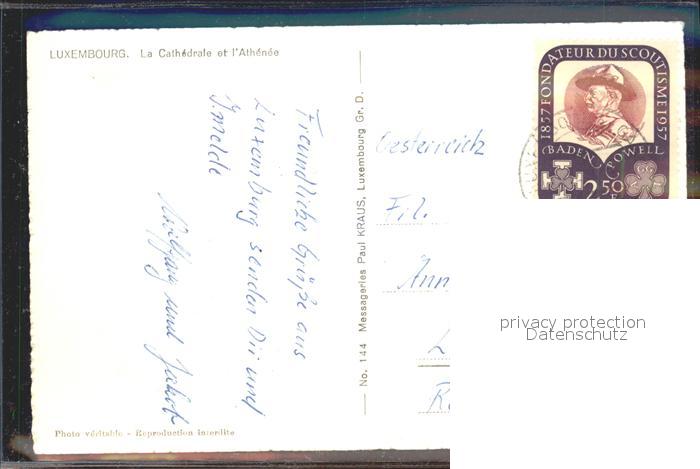 LUXEMBOURG. La Cathédrale et l'Athénée
Freundliche Grüße aus
Luxemburg senden Dir und
Imelde
Wolfgang und Jakob
Photo véritable - Reproduction interdite
No. 144 Messageries Paul KRAUS, Luxembourg Gr. D.
Oesterreich
Frl.
Ann
1857 FONDATEUR DU SCOUTISME 1957
BADEN POWELL
2,50 F
privacy protection
Datenschutz